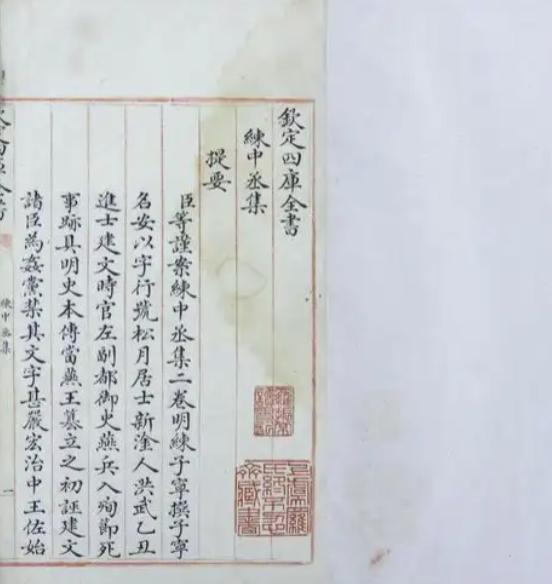 欽定四庫全書
練中丞集
提要
臣等謹案練中丞集二卷明練子寧撰子寧
名安以字行號松月居士新淦人洪武乙丑
進士建文時官左副都御史燕兵入殉節死
事跡具明史本傳當燕王簒立之初誣建文
諸臣為姦黨禁其文字甚嚴宏治中王佐始
練中丞集
一